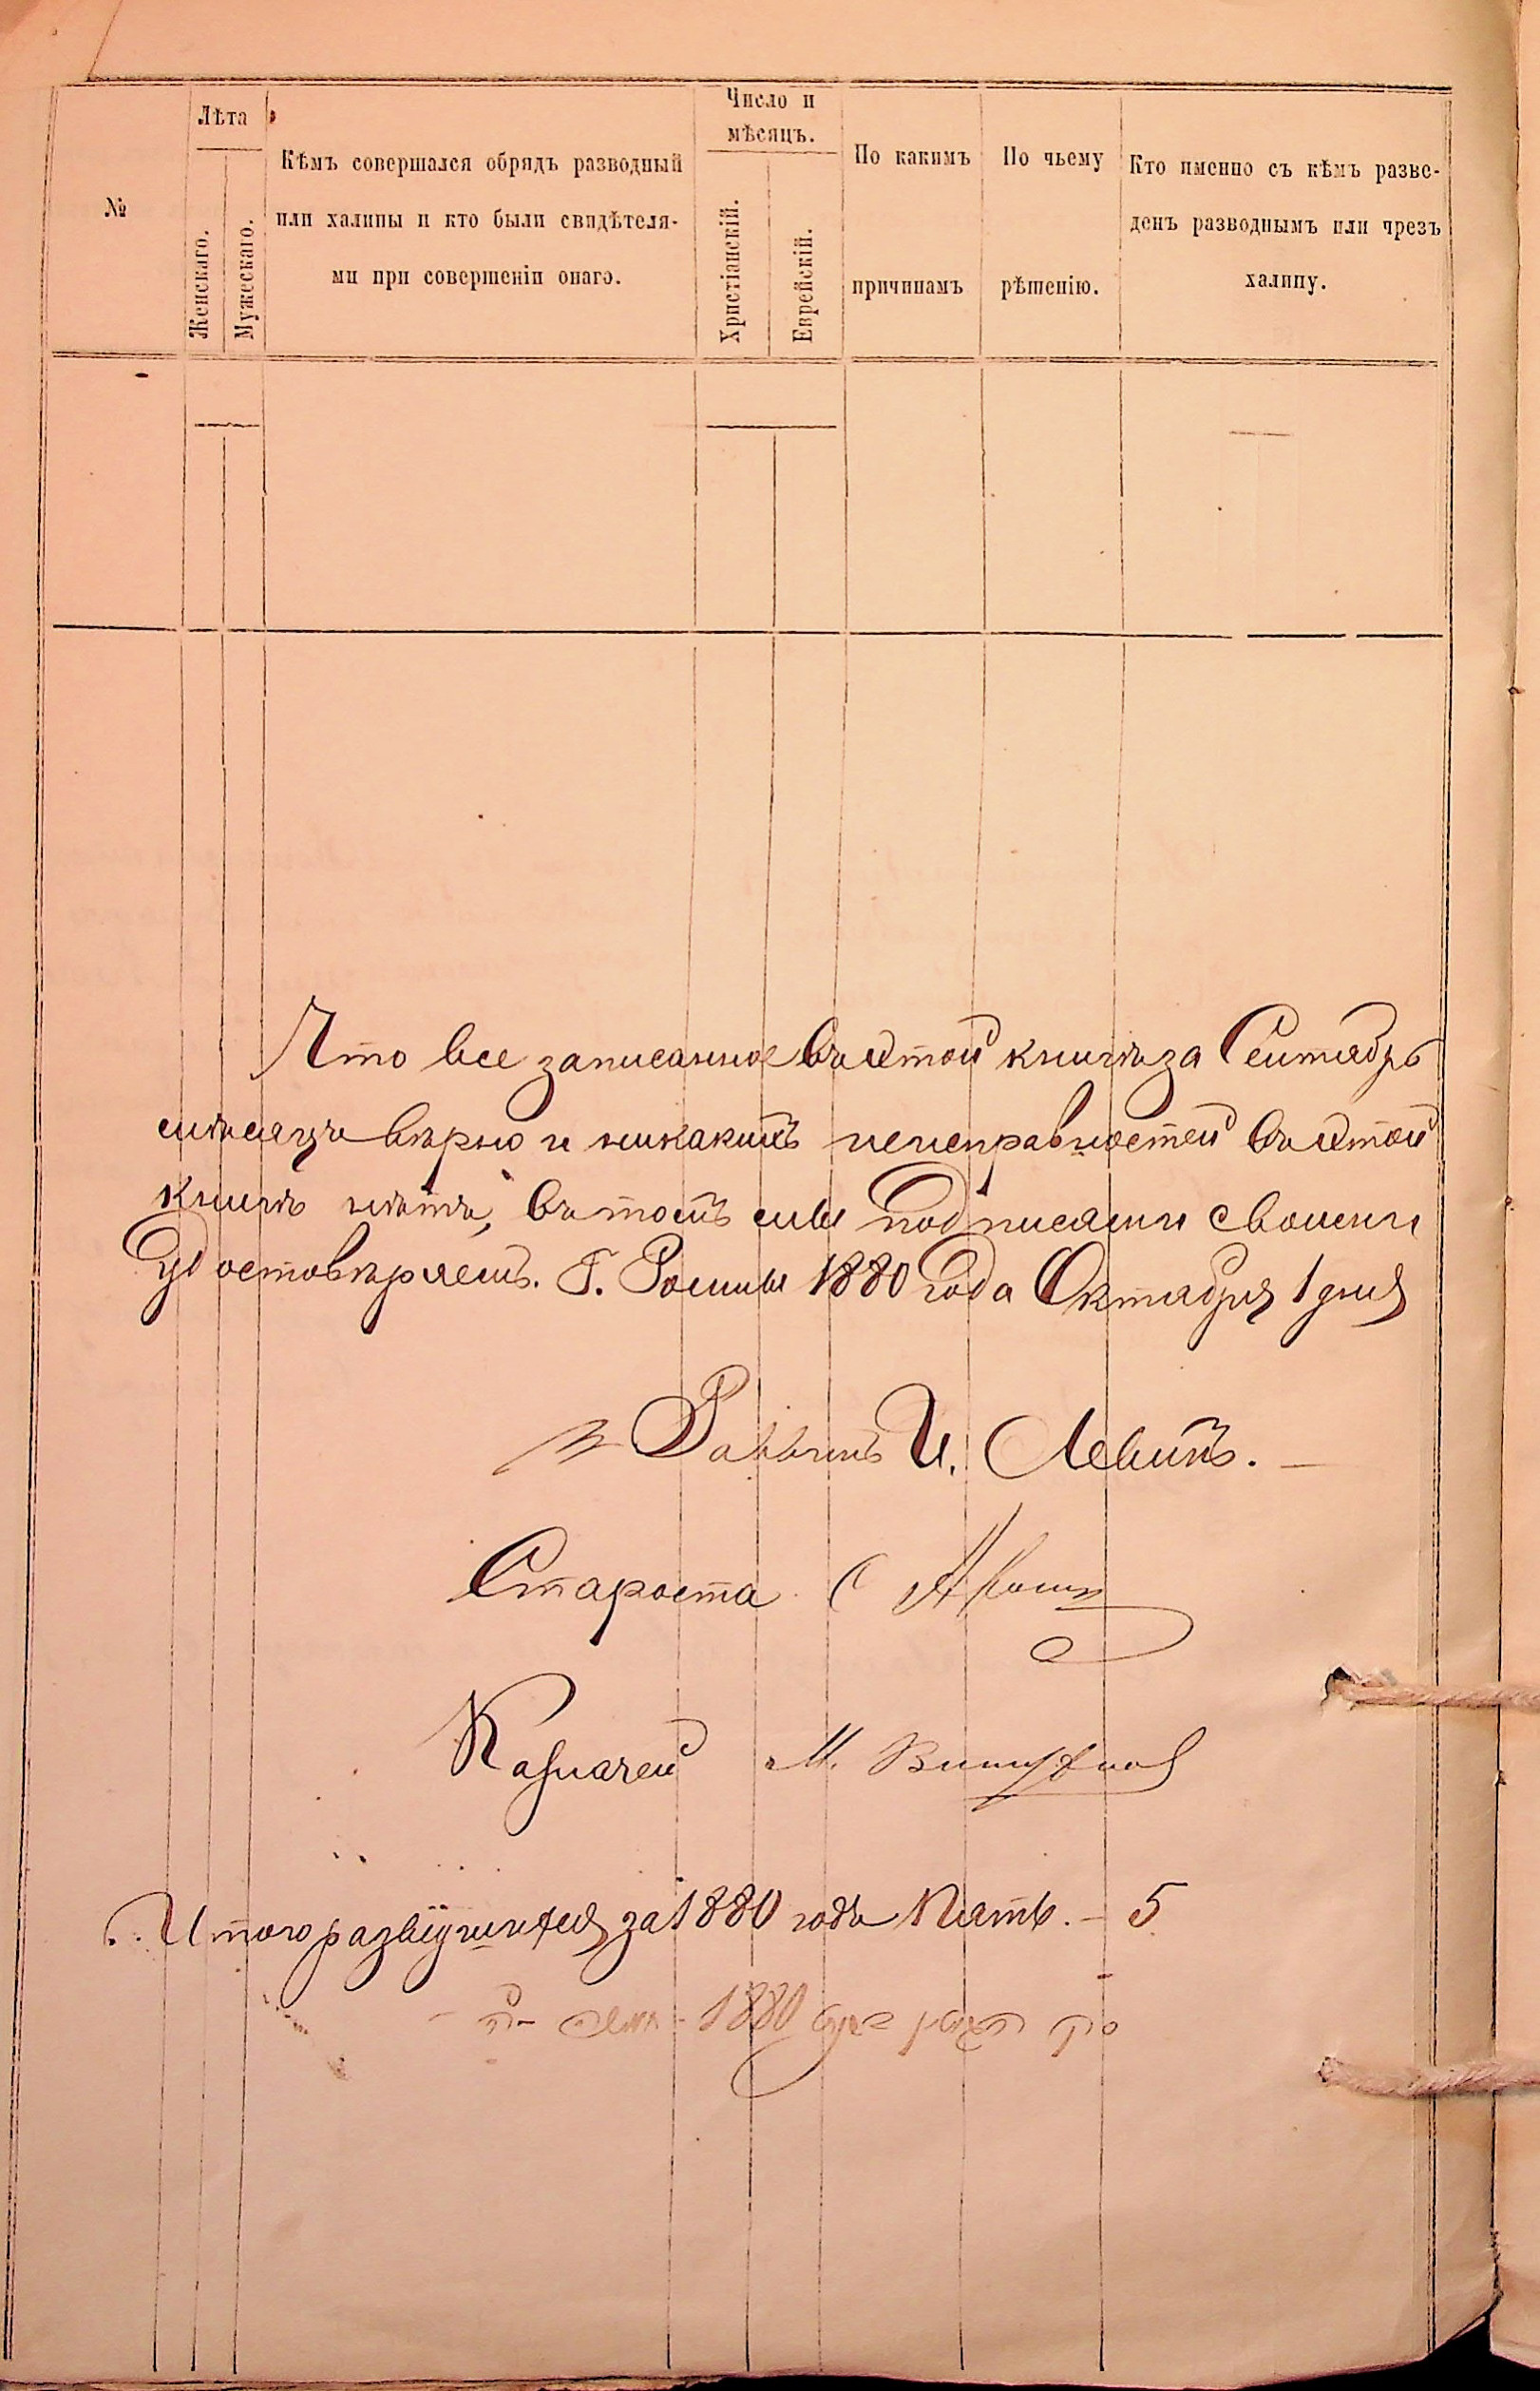 №
Лѣта
Женскаго.
Мужескаго.
Кѣмъ совершался обрядъ разводный
или халицы и кто были свидѣтеля-
ми при совершеніи онаго.
Число и
мѣсяцъ.
Христіанскій.
Еврейскій.
По какимъ
причинамъ
По чьему
рѣшенію.
Кто именно съ кѣмъ разве-
денъ разводнымъ или чрезъ
халицу.
Что все записанное въ этой книгѣ за Сентябрь
мѣсяцъ вѣрно и никакихъ неисправностей въ этой
книгѣ нѣтъ, въ томъ мы подписами своими
удостовѣряемъ. Г. Ромны 1880 года Октября 1 дня
Раввинъ И. Левинъ.
Староста С
Казначей М.
Итого за 1880 годъ Пять. - 5
1880